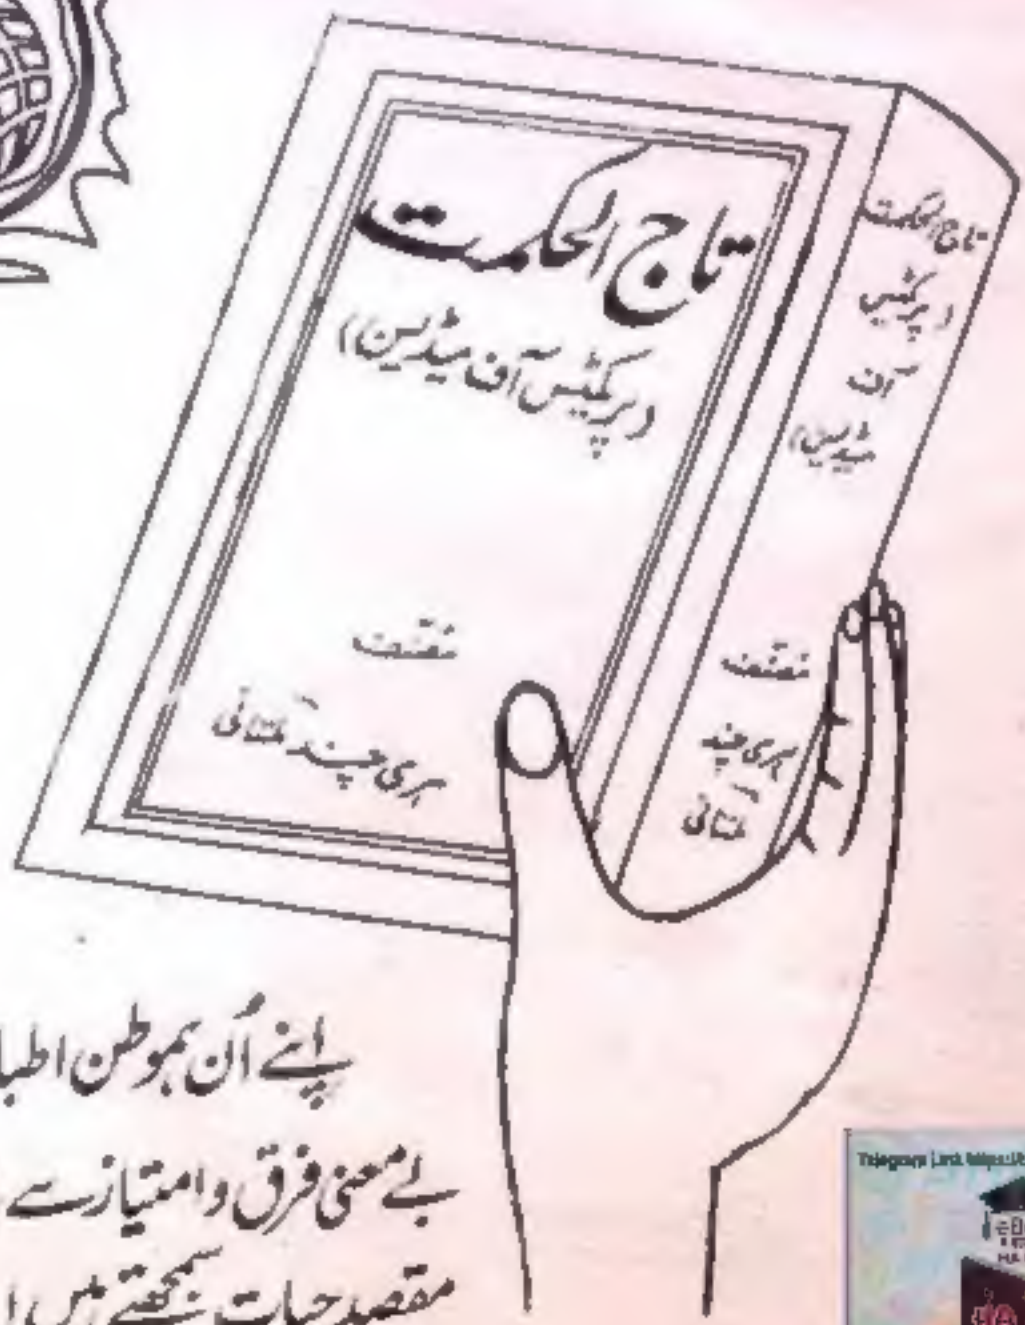 تاج الحکمت
(پریکٹیس آف میڈیسن)
مصنف
ہری چند ملتانی
تاج الحکمت
(پریکٹیس
آف
میڈیسن)
مصنف
ہری چند
ملتانی
اپنے اُن ہموطن اطبا
بے معنی فرق و امتیاز سے
مقصدِ حیات سمجھتے ہیں
Telegram Link